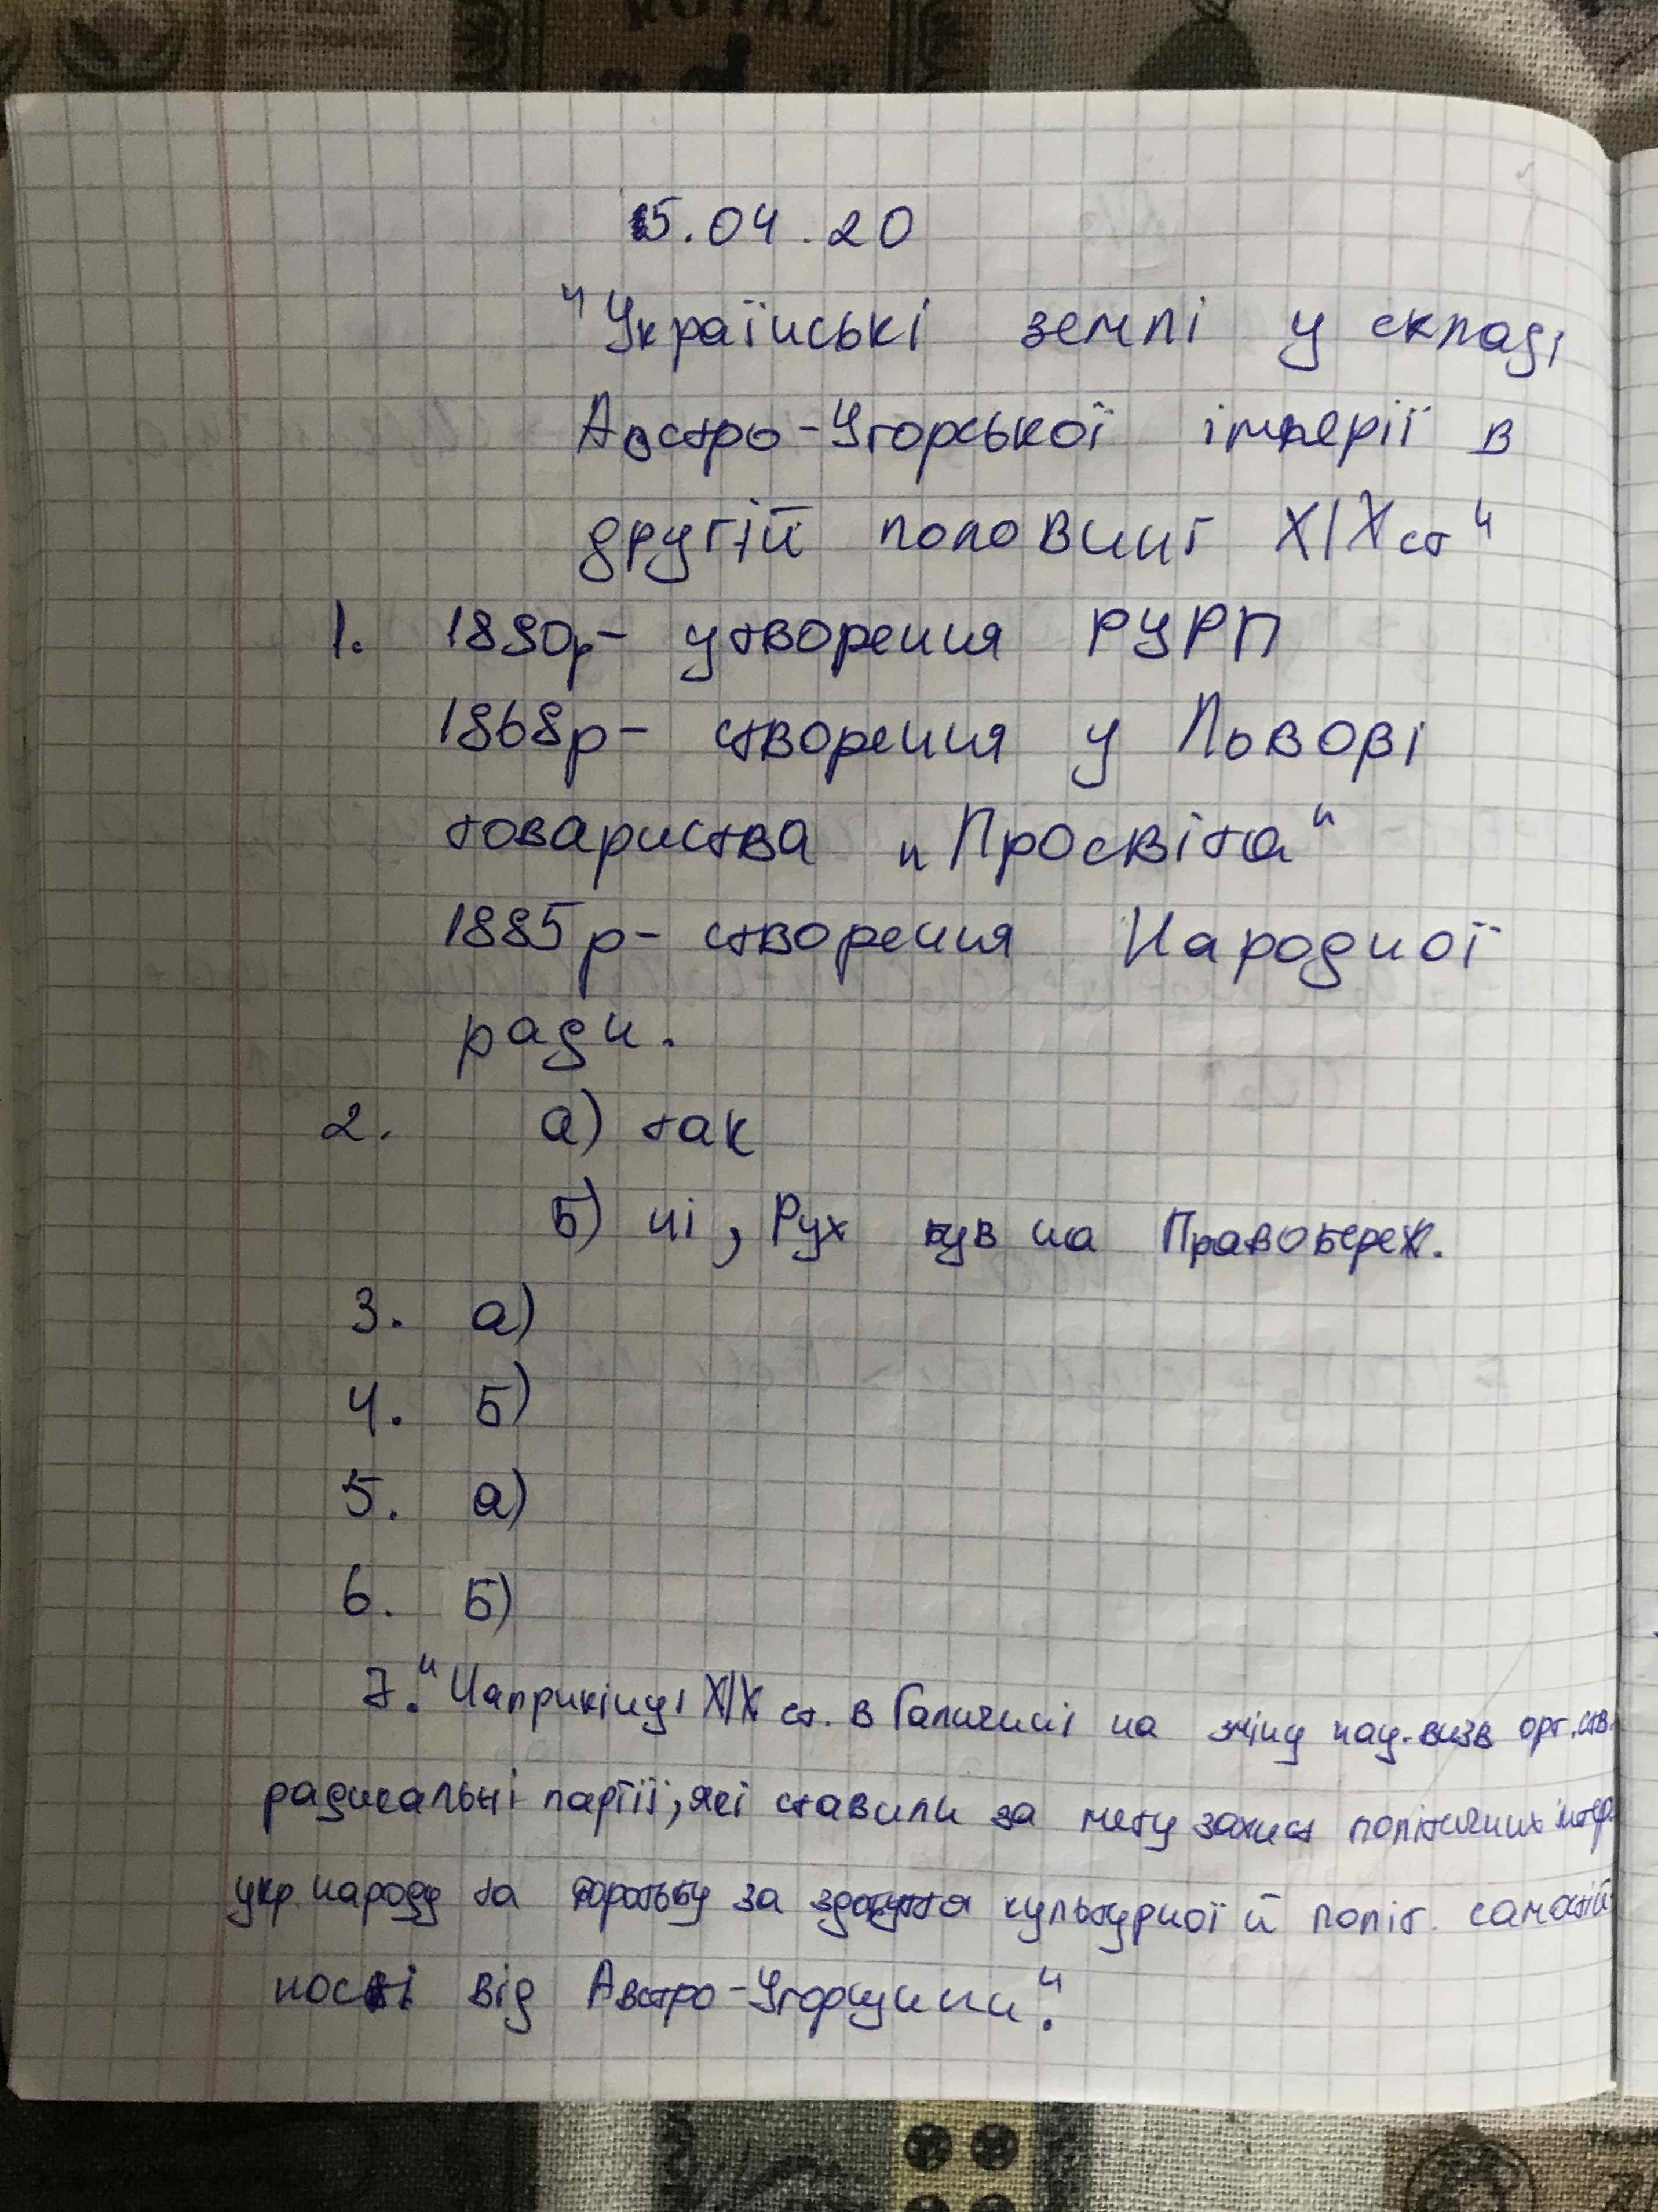 5.04.20
"Українські землі у складі
Австро-Угорської імперії в
другій половині XIXст"
1. 1890р- утворення РУРП
1868р- створення у Львові
товариства „Просвіта"
1885р- створення Народної
ради.
2. а) так
Б) ні, Рух був на Правобереж.
3. а)
4. Б)
5. а)
6. Б)
7. "Наприкінці XIX ст. в Галичині на зміну нац-визв орг. ств.
радикальні партії, які ставили за мету захист політичних інтер.
укр. народу та боротьбу за здобуття культурної й політ. самостій
ності від Австро-Угорщини".